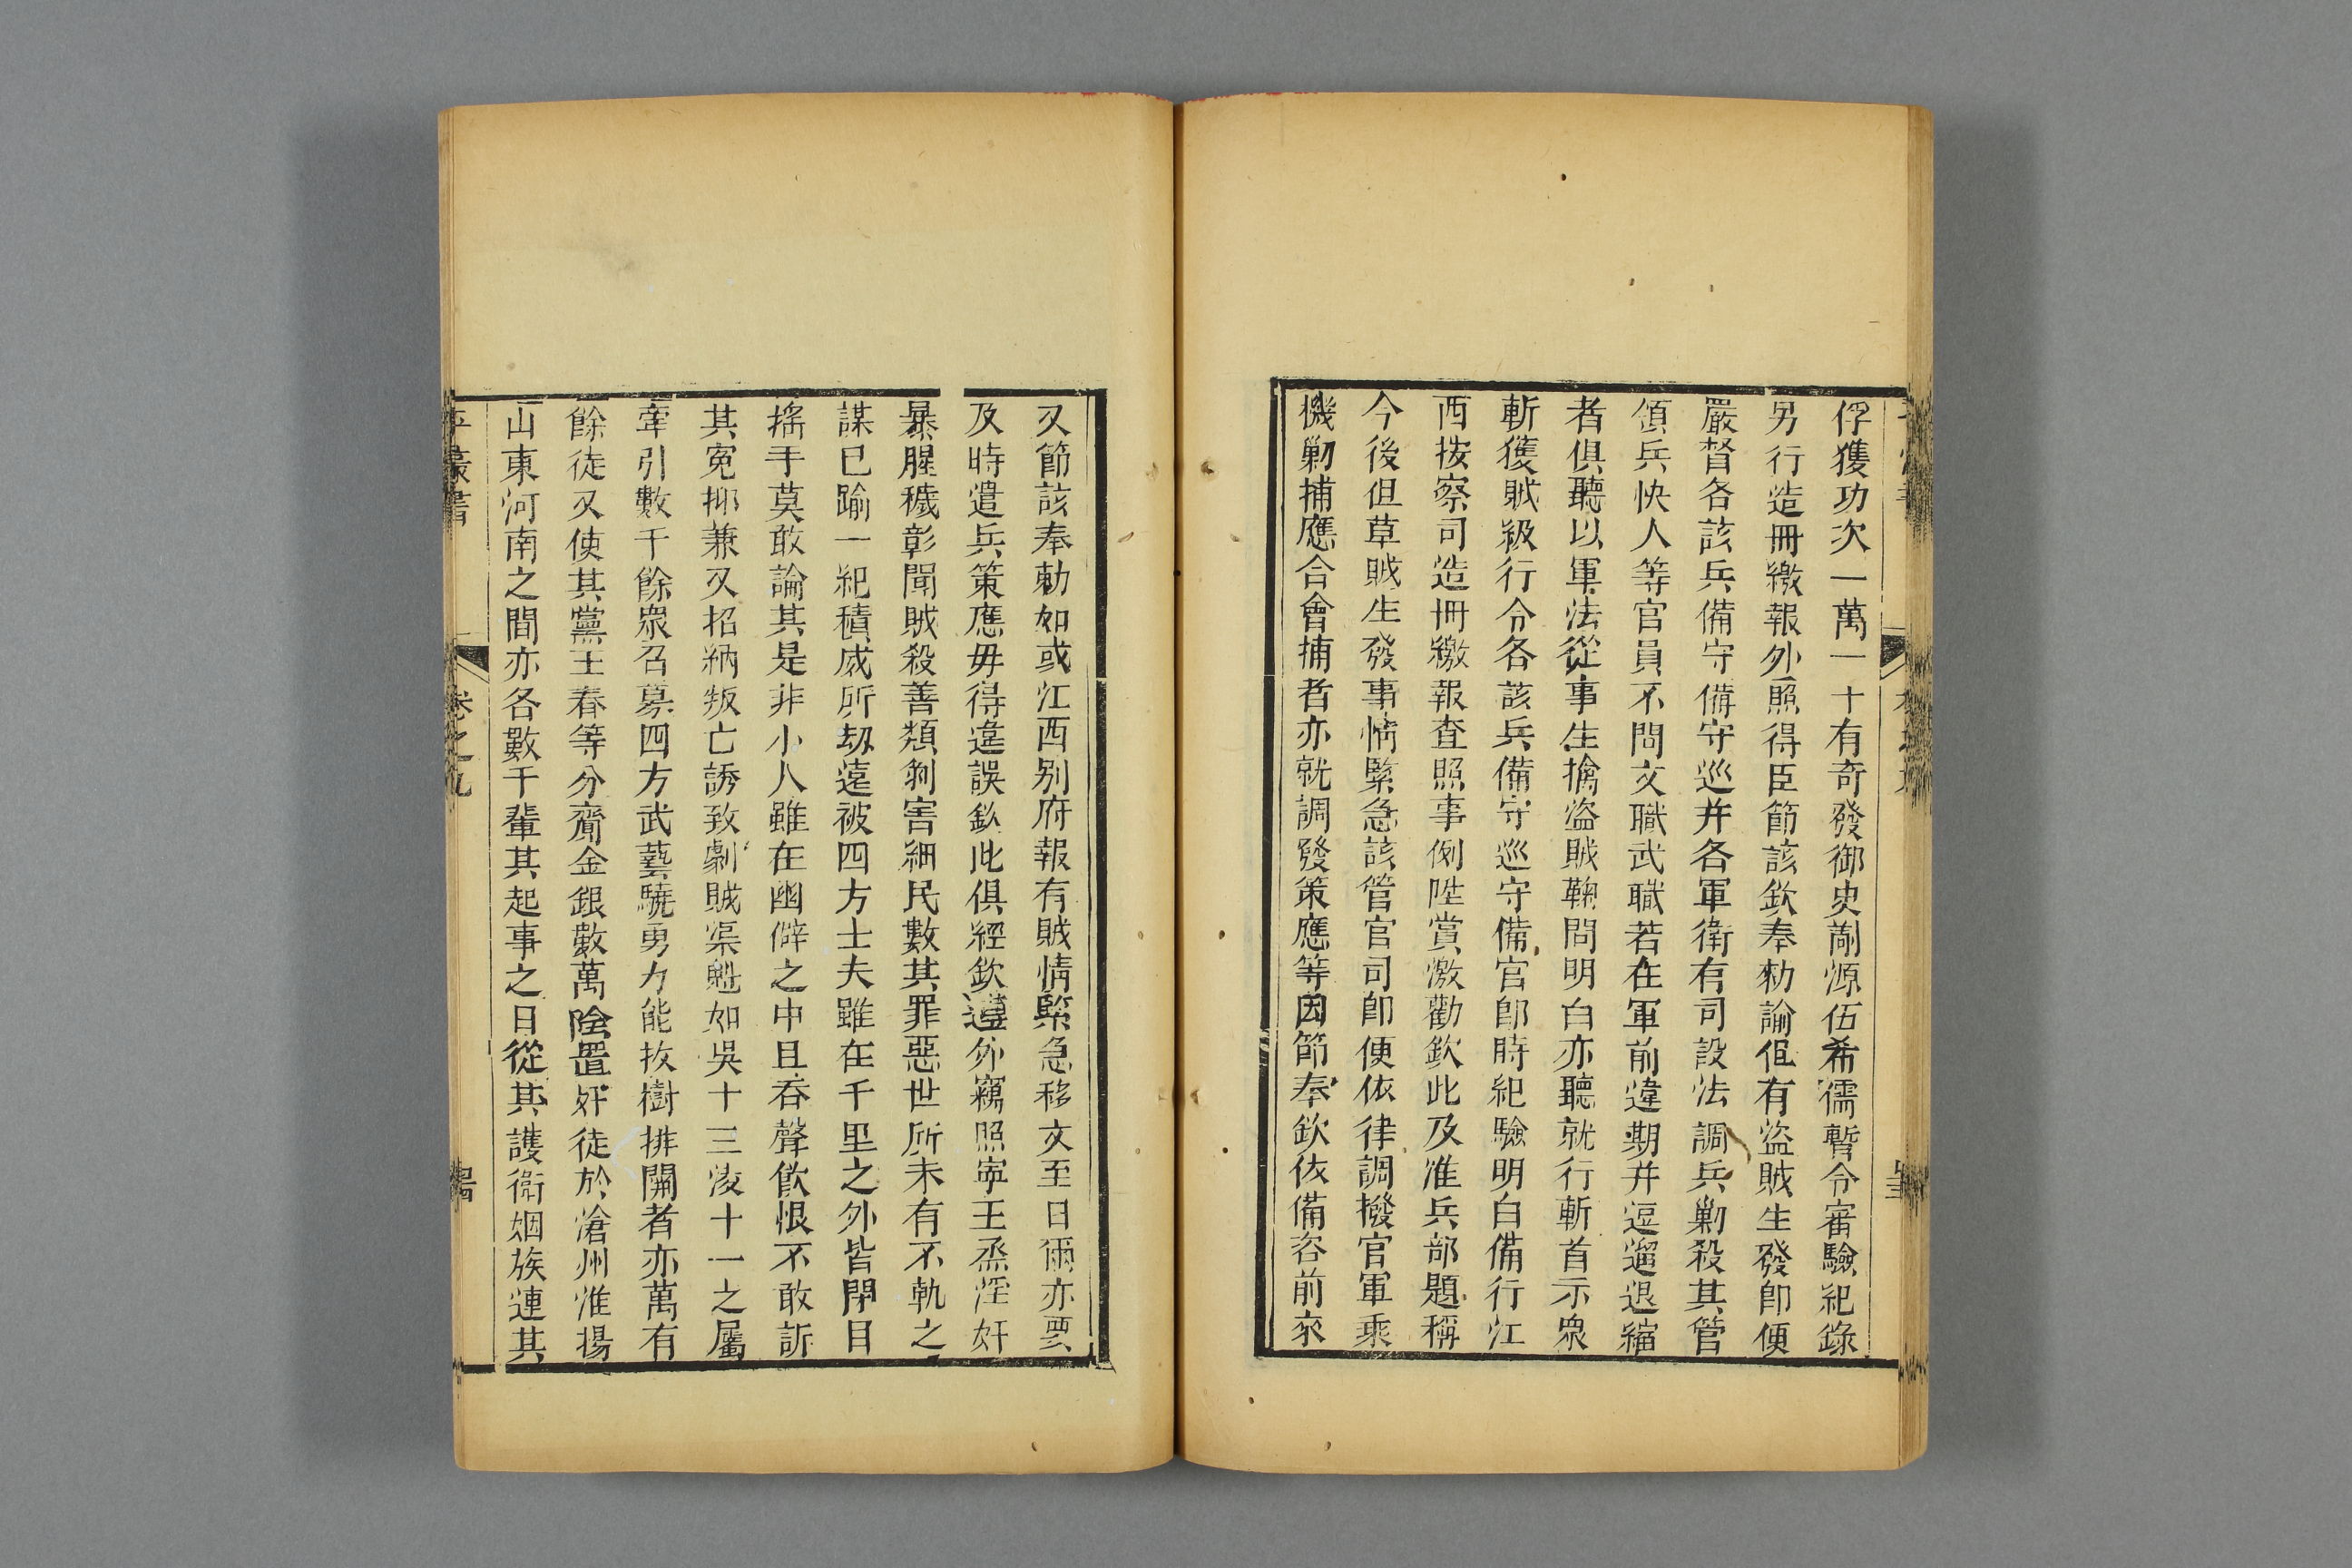 俘獲功次一萬一十有奇發御史謝源伍希儒暫令審驗紀錄
另行造冊繳報外照得臣節該欽奉勑諭但有盜賊生發卽便
嚴督各該兵備守備守巡并各軍衛有司設法調兵剿殺其管
領兵快人等官員不問文職武職若在軍前違期并逗遛退縮
者俱聽以軍法從事生擒盜賊鞫問明白亦聽就行斬首示衆
斬獲賊級行令各該兵備守巡守備官卽時紀驗明白備行江
西按察司造冊繳報查照事例陞賞激勸欽此及准兵部題稱
今後但草賊生發事情緊急該管官司卽便依律調撥官軍乘
機剿捕應合會捕者亦就調發策應等因節奉欽依備咨前來
又節該奉勅如或江西别府報有賊情緊急移文至日爾亦要
及時遣兵策應毋得違誤欽此俱經欽遵外竊照寧王烝淫奸
暴腥穢彰聞賊殺善類剝害細民數其罪惡世所未有不軌之
謀已踰一紀積威所劫遠被四方士夫雖在千里之外皆閉目
搖手莫敢論其是非小人雖在幽僻之中且吞聲飲恨不敢訴
其冤抑兼又招納叛亡誘致劇賊渠魁如吳十三淩十一之屬
牽引數千餘衆召募四方武藝驍勇力能拔樹排關者亦萬有
餘徒又使其黨王春等分齎金銀數萬陰置奸徒於滄州淮揚
山東河南之間亦各數千輩其起事之日從其護衛姻族連其
卷之九